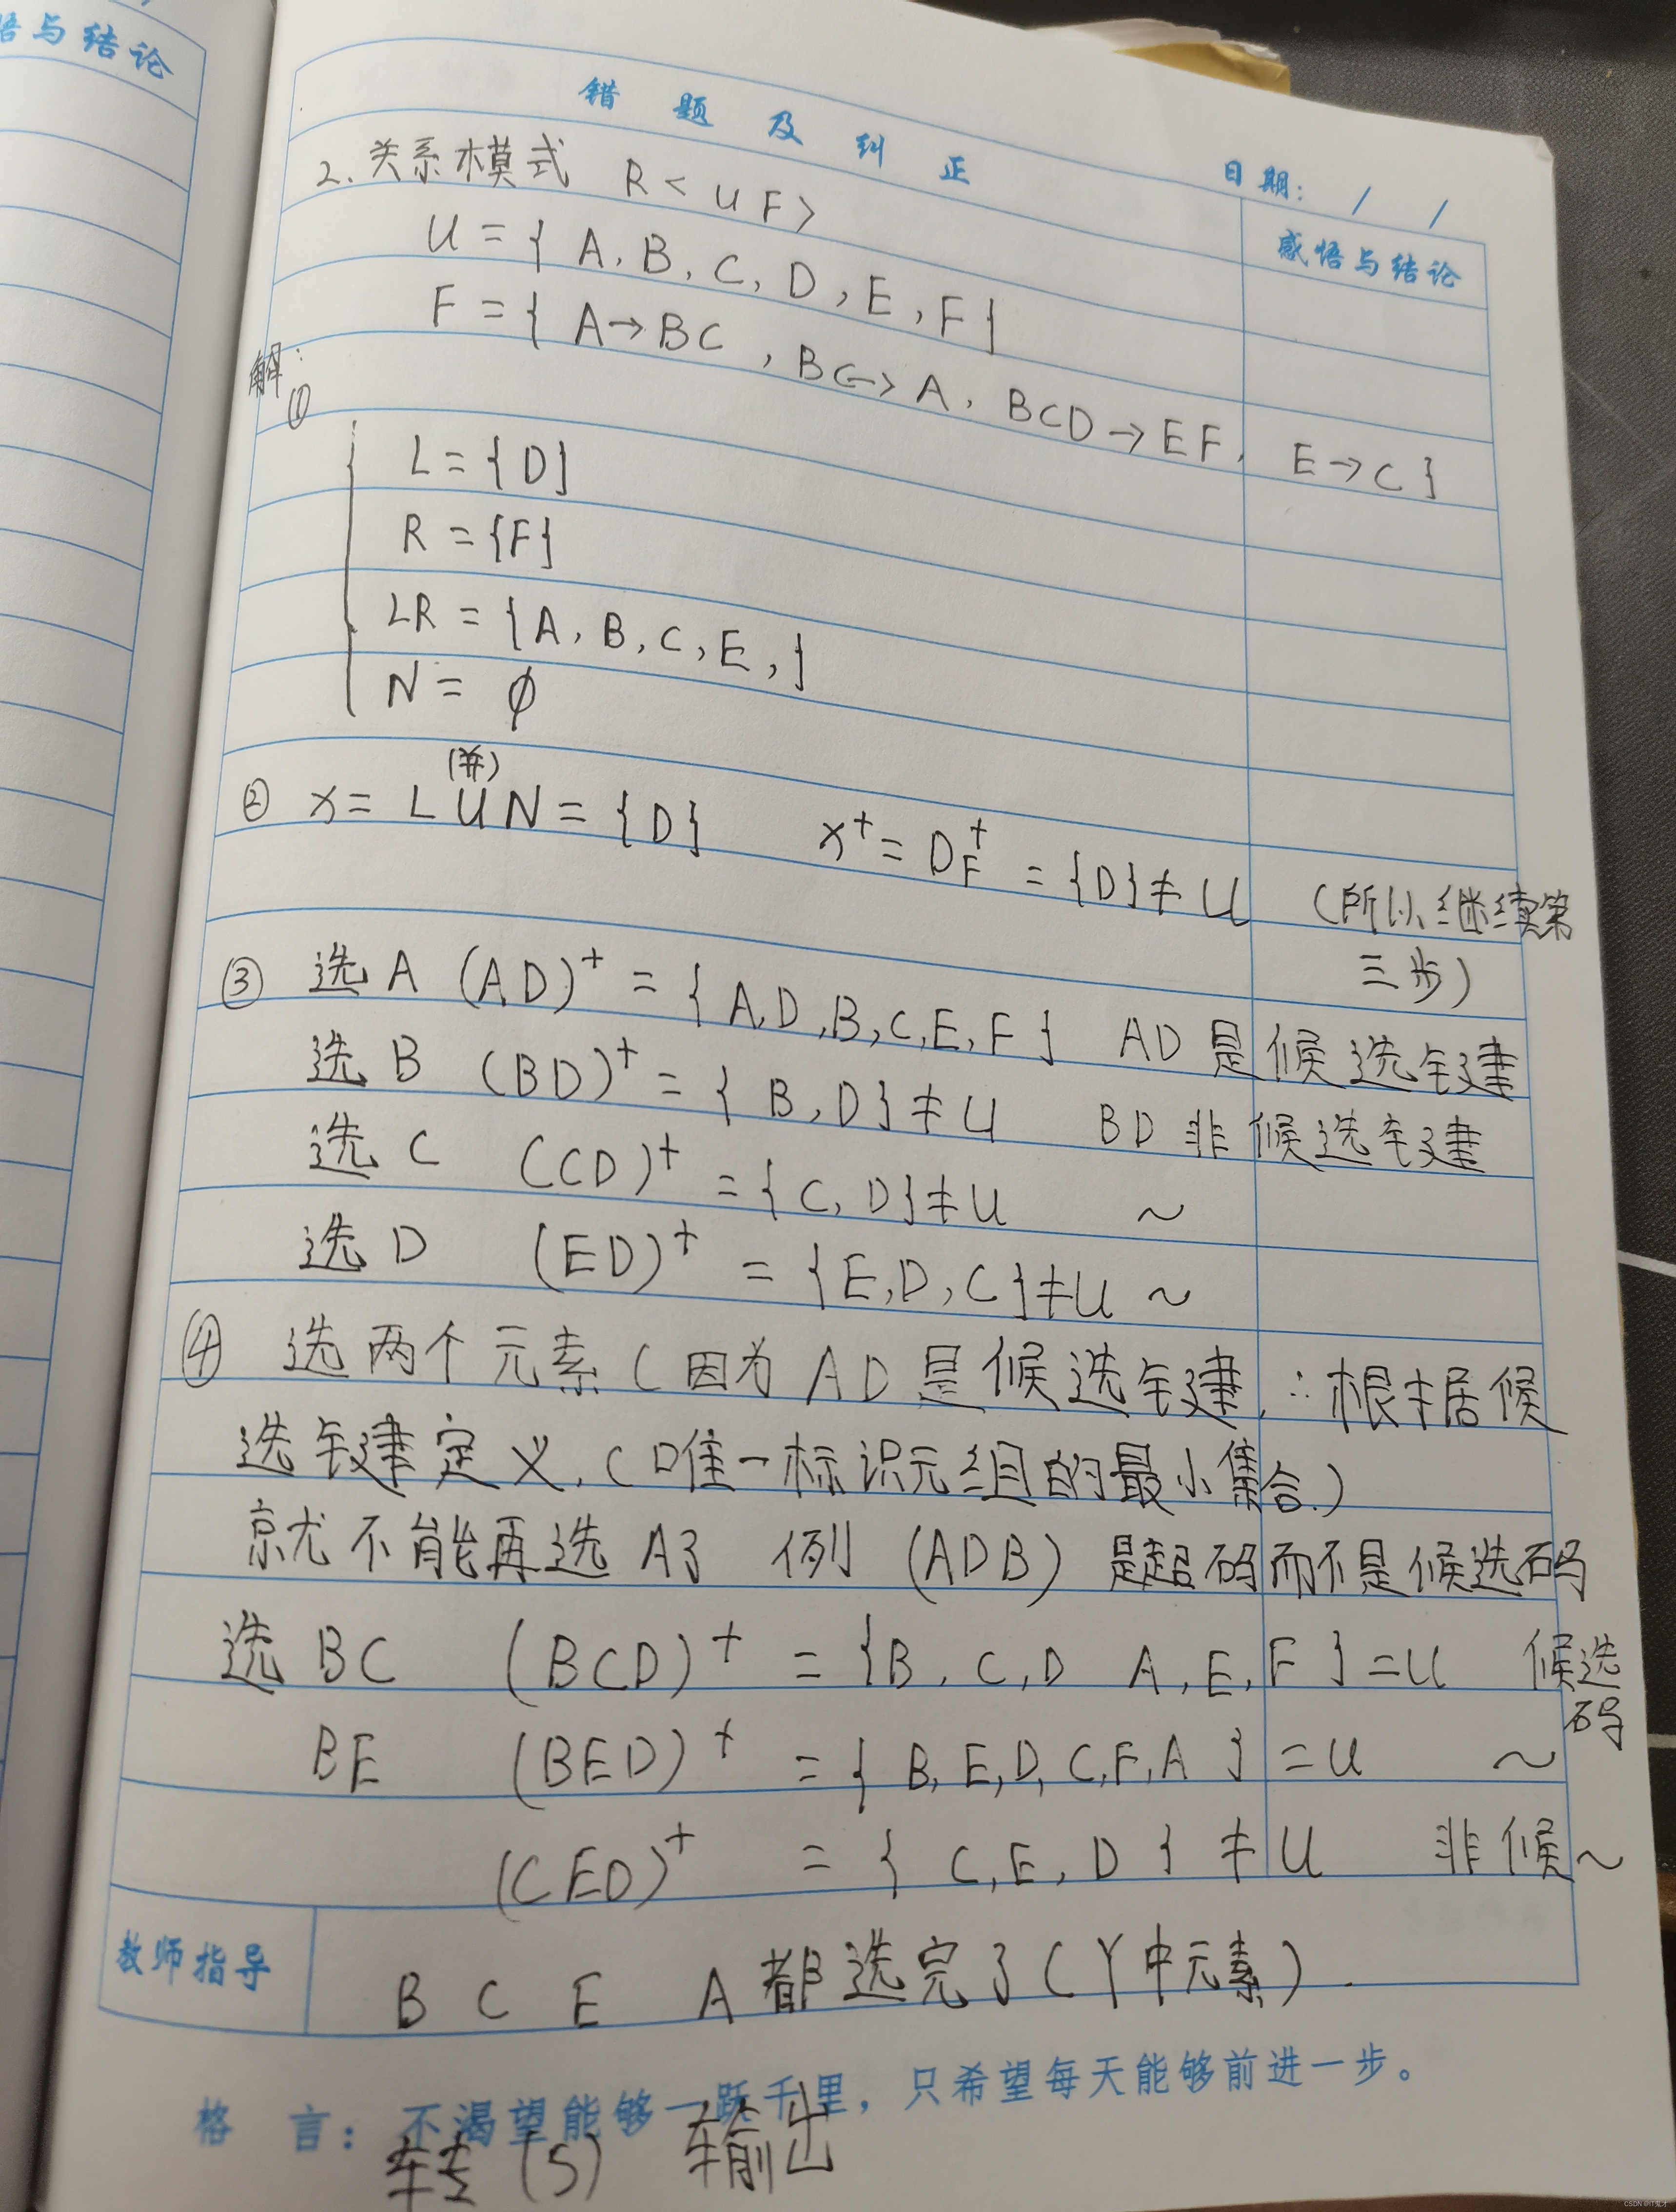 悟与结论
错题及纠正
日期： / /
感悟与结论
2. 关系模式 R<UF>
U={A,B,C,D,E,F}
F={A→BC,BC→A,BCD→EF,E→C}
解:
① L={D}
R={F}
LR={A,B,C,E,}
N=∅
(并)
② x=LUN={D} x⁺=D_F⁺={D}≠U (所以继续第
三步)
③ 选A (AD)⁺={A,D,B,C,E,F} AD是候选键
选B (BD)⁺={B,D}≠U BD非候选键
选C (CD)⁺={C,D}≠U ~
选D (ED)⁺={E,D,C}≠U ~
④ 选两个元素(因为AD是候选键,∴根据候
选键定义,(唯一标识元组的最小集合.)
就不能再选A了 例 (ADB) 是超码而不是候选码
选BC (BCD)⁺={B,C,D A,E,F}=U 候选
码
BE (BED)⁺={B,E,D,C,F,A}=U ~
(CED)⁺={C,E,D}≠U 非候~
教师指导
B C E A都选完了(Y中元素).
格言：不渴望能够一跃千里，只希望每天能够前进一步。
转(5) 输出